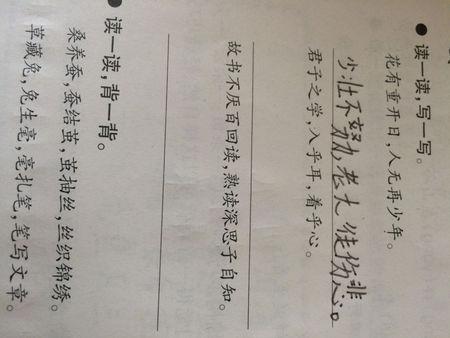 ● 读一读,写一写。
花有重开日,人无再少年。
少壮不努力,老大徒伤悲。
君子之学,入乎耳,着乎心。
故书不厌百回读,熟读深思子自知。
● 读一读,背一背。
桑养蚕,蚕结茧,茧抽丝,丝织锦绣。
草藏兔,兔生毫,毫扎笔,笔写文章。